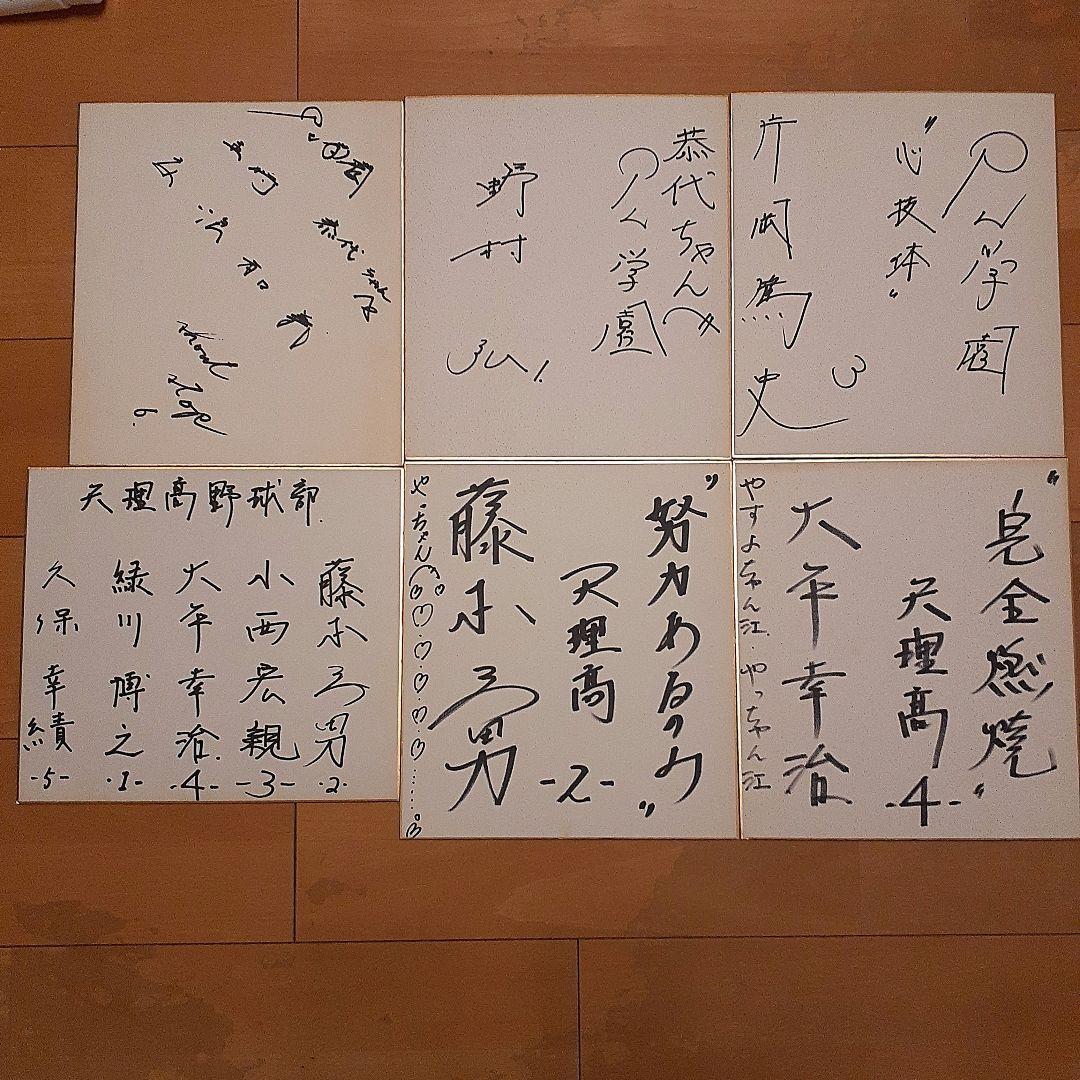 PL学園
恭代ちゃん江
立浪和義
short
stop
6.
恭代ちゃんへ
PL学園
野村弘!
PL学園
"心技体"
片岡篤史
3
天理高野球部.
藤本三男 -2-
小西宏親 -3-
大年幸治. -4-
緑川博之 -1-
久保幸績 -5-
"努力あるのみ"
天理高 -2-
藤本三男
やっちゃんへ
"完全燃焼"
天理高 -4-
大年幸治
やすよちゃん江.やっちゃん江